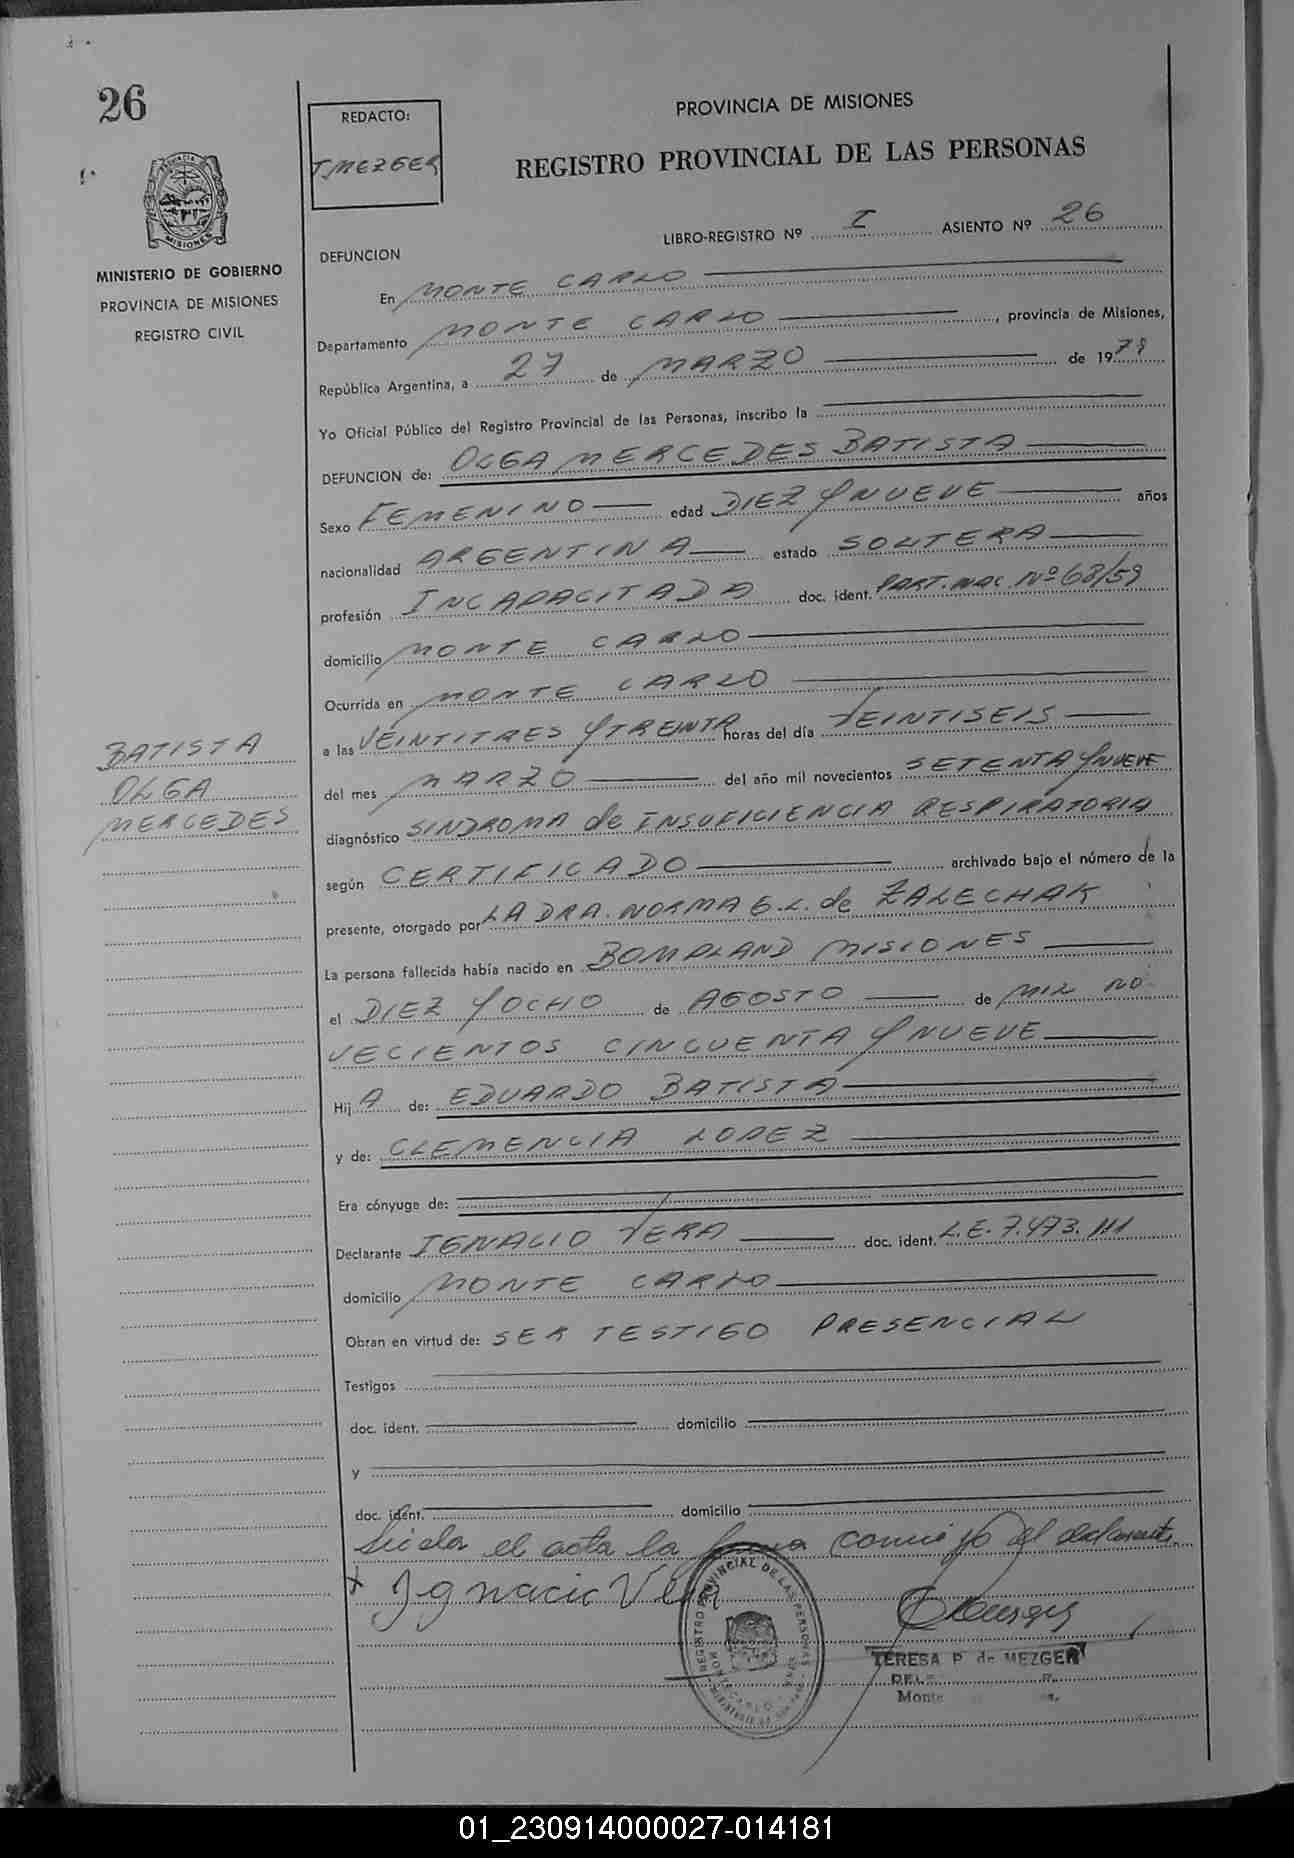 26
REDACTO:
T. MEZGER
PROVINCIA DE MISIONES
REGISTRO PROVINCIAL DE LAS PERSONAS
PROVINCIA
MISIONES
MINISTERIO DE GOBIERNO
PROVINCIA DE MISIONES
REGISTRO CIVIL
LIBRO-REGISTRO Nº I ASIENTO Nº 26
DEFUNCION
En MONTE CARLO
Departamento MONTE CARLO, provincia de Misiones,
República Argentina, a 27 de MARZO de 1979
Yo Oficial Público del Registro Provincial de las Personas, inscribo la
DEFUNCION de: OLGA MERCEDES BATISTA
Sexo FEMENINO edad DIEZ Y NUEVE años
nacionalidad ARGENTINA estado SOLTERA
profesión INCAPACITADA doc. ident. PART. NAC. Nº 68/59
domicilio MONTE CARLO
Ocurrida en MONTE CARLO
a las VEINTITRES Y TREINTA horas del día VEINTISEIS
del mes MARZO del año mil novecientos SETENTA Y NUEVE
diagnóstico SINDROMA de INSUFICIENCIA RESPIRATORIA
según CERTIFICADO archivado bajo el número de la
presente, otorgado por LA DRA. NORMA G. L. de ZALECHAK
La persona fallecida había nacido en BOMPLAND MISIONES
el DIEZ Y OCHO de AGOSTO de MIL NO
VECIENTOS CINCUENTA Y NUEVE
Hij A de: EDUARDO BATISTA
y de: CLEMENCIA LOPEZ
Era cónyuge de:
Declarante IGNACIO VERA doc. ident. L.E. 7.473.111
domicilio MONTE CARLO
Obran en virtud de: SER TESTIGO PRESENCIAL
Testigos
doc. ident. domicilio
y
doc. ident. domicilio
BATISTA
OLGA
MERCEDES
Leida el acta la firma conmigo el declarante.
x Ignacio Vera
REGISTRO PROVINCIAL DE LAS PERSONAS
TERESA P. de MEZGER
Monte
01_230914000027-014181